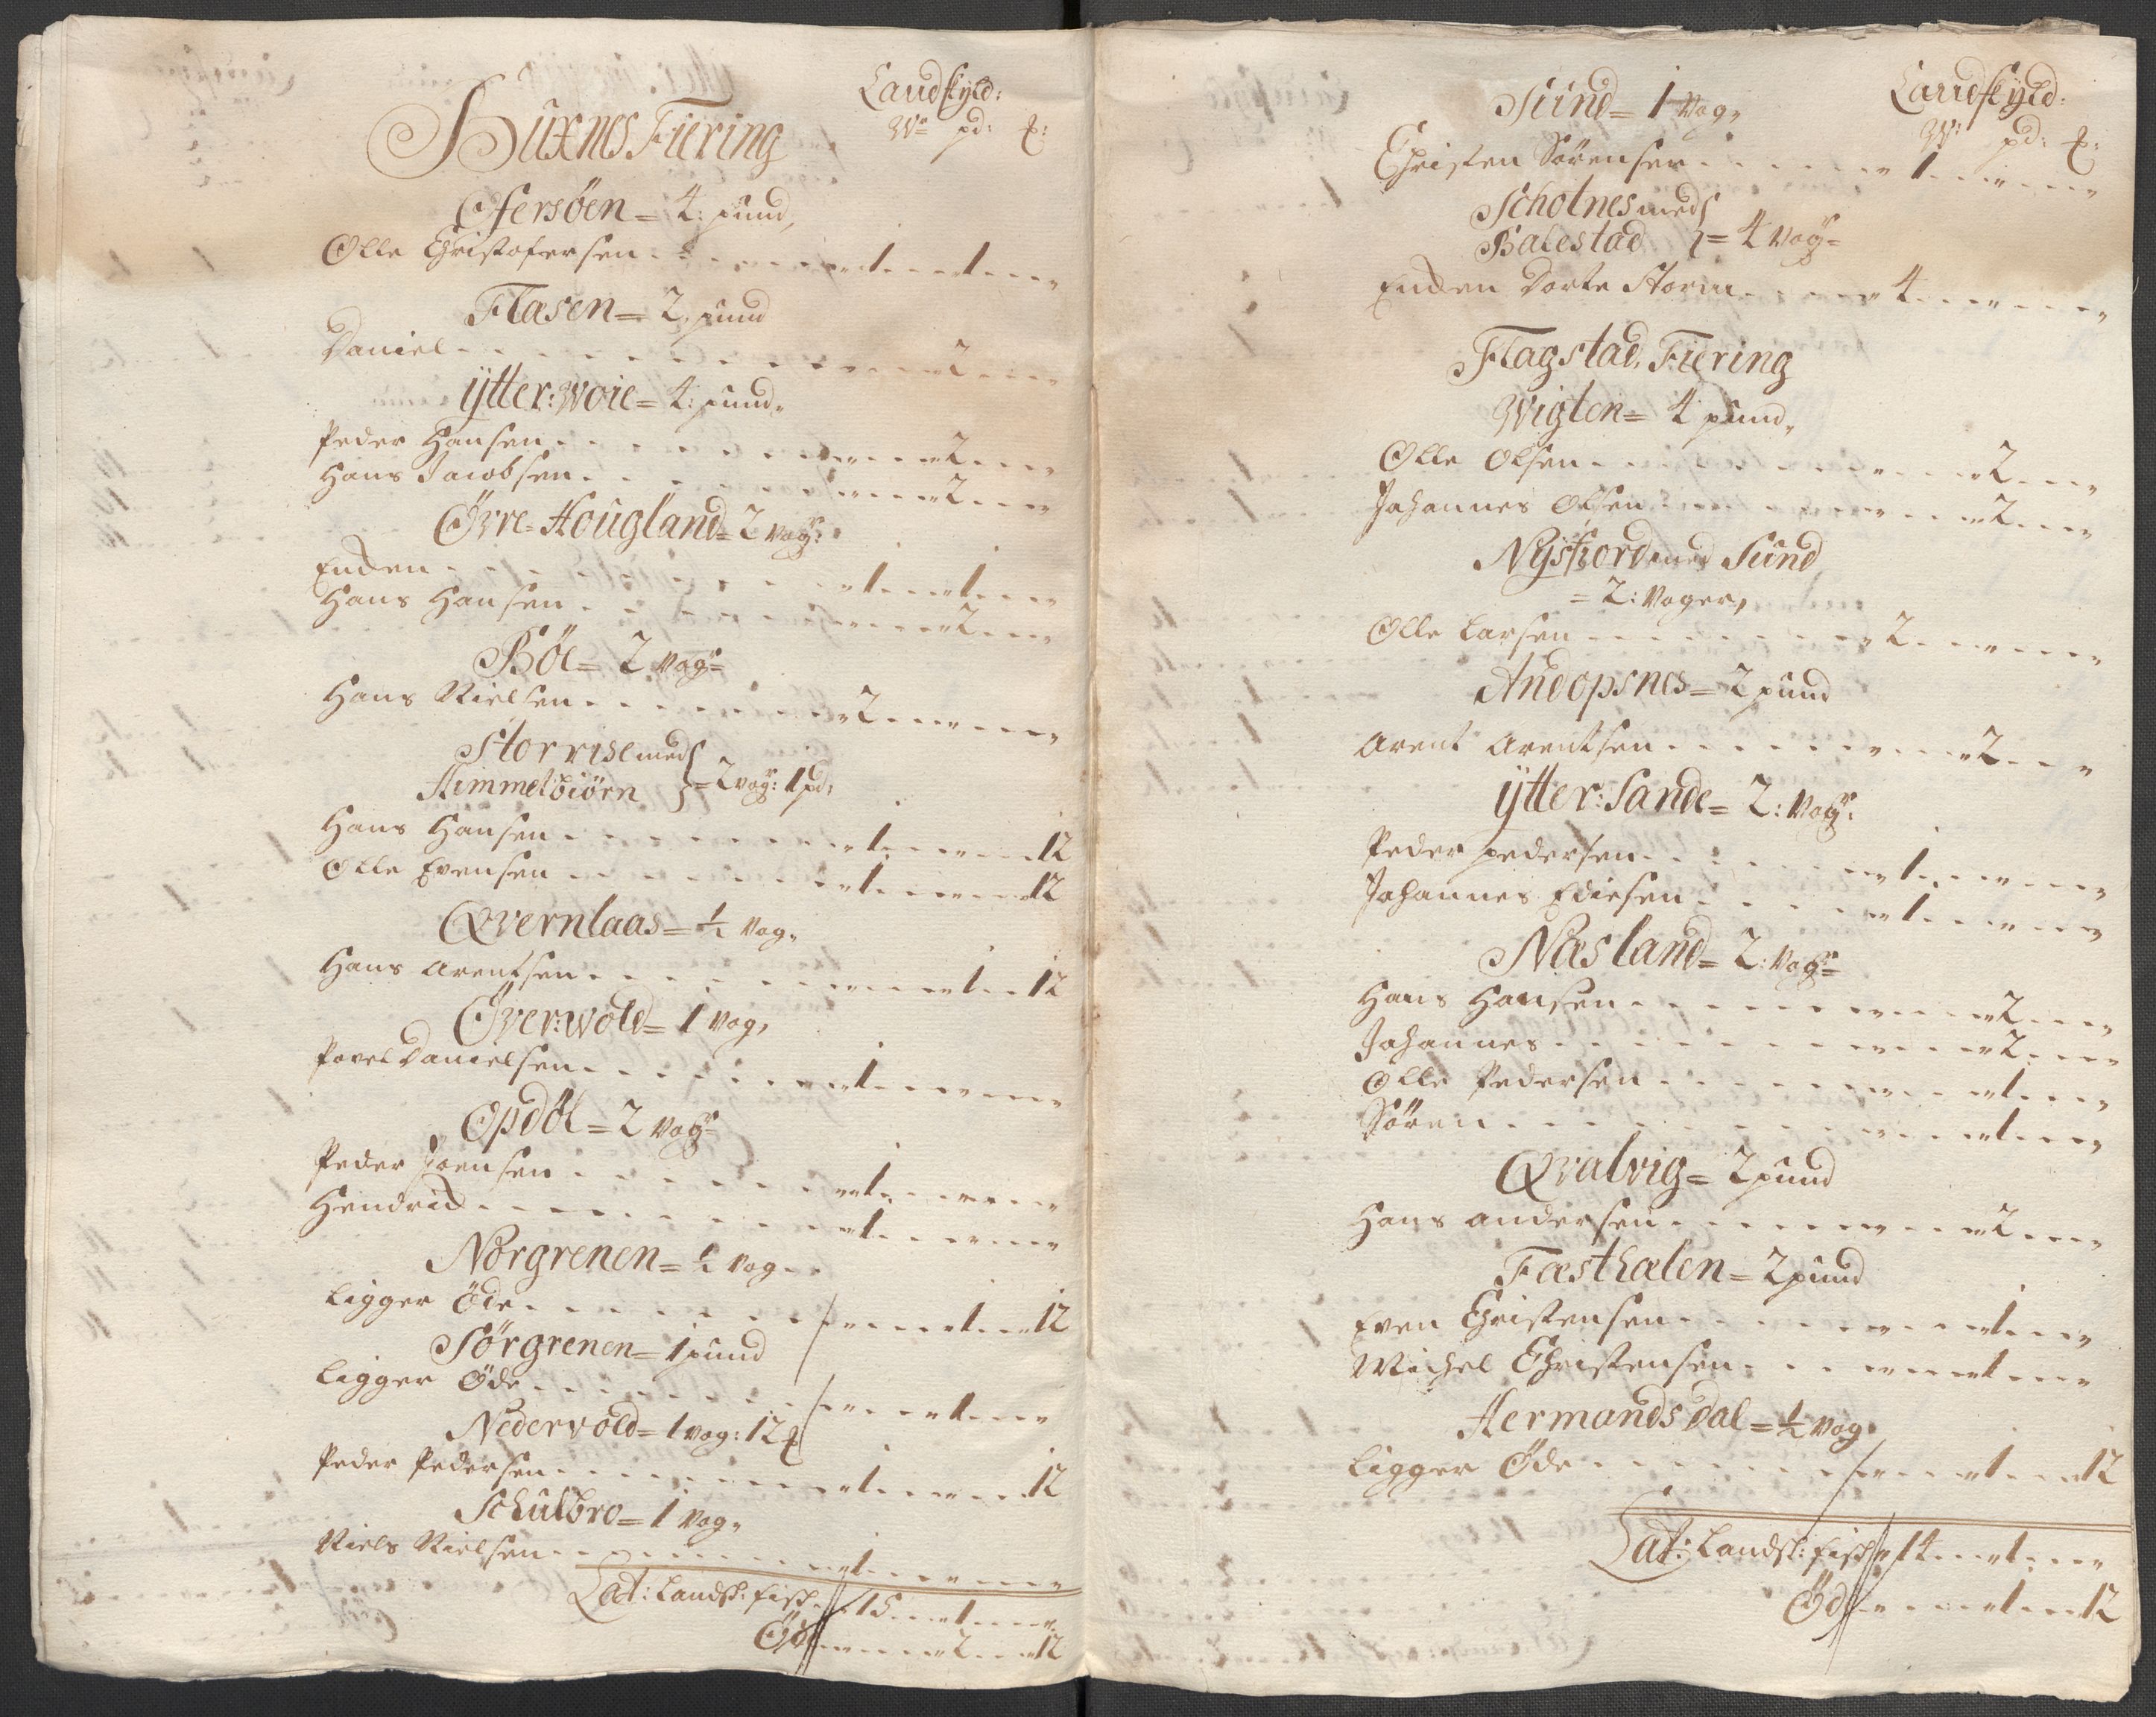 Landskyld:
Buxnes Fiering
W: pd: ℔:
Ofersöen = 4: pund,
Olle Christofersen - - - 1 - - 1 - - -
Flasen = 2. pund
Daniel - - - 2 - - -
ÿtter: Woie = 4: pund,
Peder Hansen - - - 2 - - -
Hans Jacobsen - - - 2 - - -
Öfre - Hougland = 2 vogr:
Enken - - - 1 - - 1 - - -
Hans Hansen - - - 2 - - -
Böe = 2 vogr
Hans Nielsen - - - 2 - - -
Storrise med
Himmelbiörn } = 2 vogr: 1 pd:
Hans Hansen - - - 1 - - - 12
Olle Evensen - - - 1 - - - 12
Qvernlaas = ½ vog,
Hans Arentsen - - - 1 - - 12
Över: wold = 1 vog,
Povel Danielsen - - - 1 - - -
Opdöl = 2 vogr
Peder Joensen - - - 1 - - -
Hendrick - - - 1 - - -
Norgrenen = ½ vog - -
Ligger Öde - - - 1 - - 12
Sörgrenen = 1 pund
Ligger Öde - - - 1 - - -
Nedervold = 1 vog: 12 ℔
Peder Pedersen - - - 1 - - - 12
Schulbro = 1 vog,
Niels Nielsen - - - 1 - - -
Lat: Landsk: fisk - 15 - - 1 - - -
Öde - - - 2 - - 12
Landskyld:
Sund = 1 vog,
W: pd: ℔:
Christen Sörensen - - - 1 - - -
Scholnes med
Balestad } = 4 vogr
Enken Dorte Storm - - - 4 - - -
Flagstad Fiering
Wigten = 4 pund,
Olle Olsen - - - 2 - - -
Johannes Olsen - - - 2 - - -
Nÿsfiord med Sund
= 2: voger,
Olle Larsen - - - 2 - - -
Andopsnes = 2 pund
Arent Arentsen - - - 2 - - -
ÿtter: Sande = 2: vogr:
Peder Pedersen - - - 1 - - -
Johannes Ediesen - - - 1 - - -
Næsland = 2: vogr
Hans Hansen - - - 2 - - -
Johannes - - - 2 - - -
Olle Pedersen - - - 1 - - -
Sören - - - 1 - - -
Qvalvig = 2 pund
Hans Andersen - - - 2 - - -
Fæsthælen = 2 pund
Even Christensen - - - 1 - - -
Michel Christensen - - - 1 - - -
Hermands Dal = ½ vog,
Ligger Öde - - - 1 - - 12
Lat: Landsk: fisk 14 - - 1 - - -
Öde - - - 1 - - 12